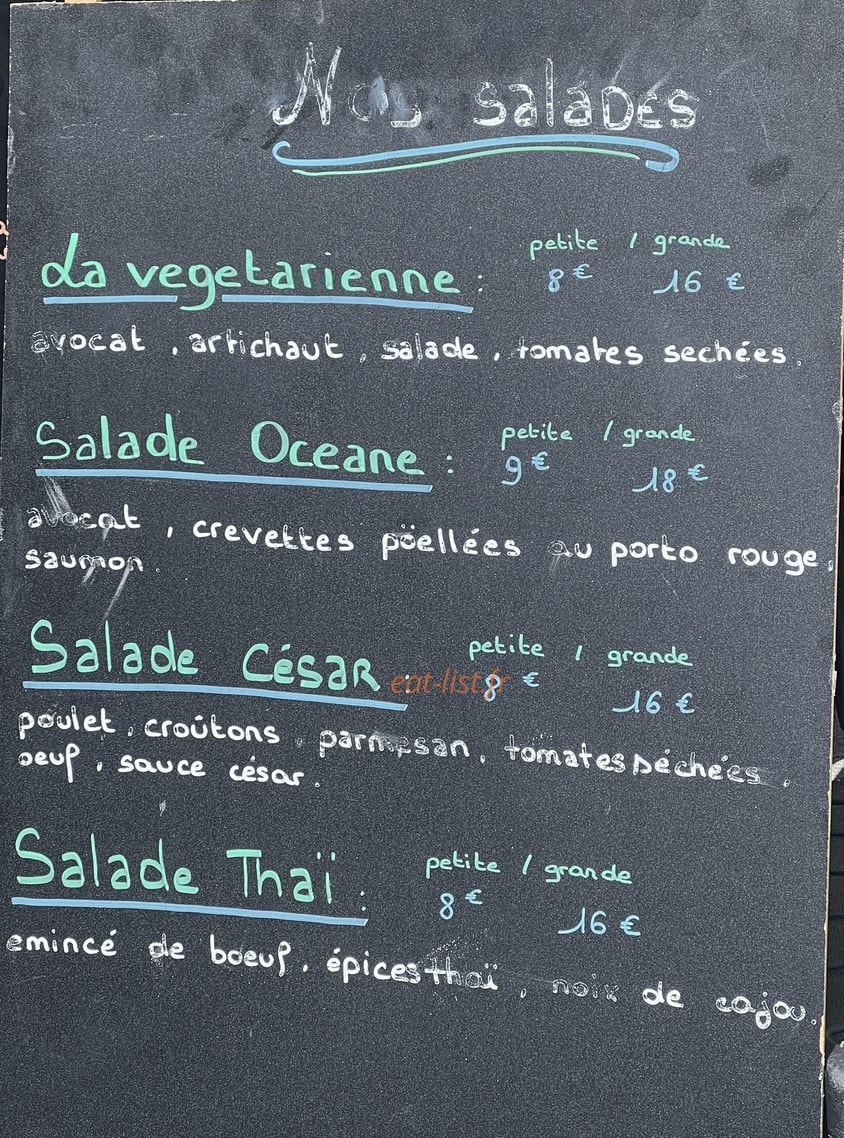 Nos salades
La vegetarienne : petite / grande
8 € 16 €
avocat , artichaut , salade , tomates sechées .
Salade Oceane : petite / grande
9 € 18 €
avocat , crevettes pöellées au porto rouge ,
saumon .
Salade César : petite / grande
eat-list.fr
8 € 16 €
poulet , croûtons , parmesan , tomates séchées ,
oeuf , sauce césar .
Salade Thaï : petite / grande
8 € 16 €
emincé de boeuf , épices thaï , noix de cajou .